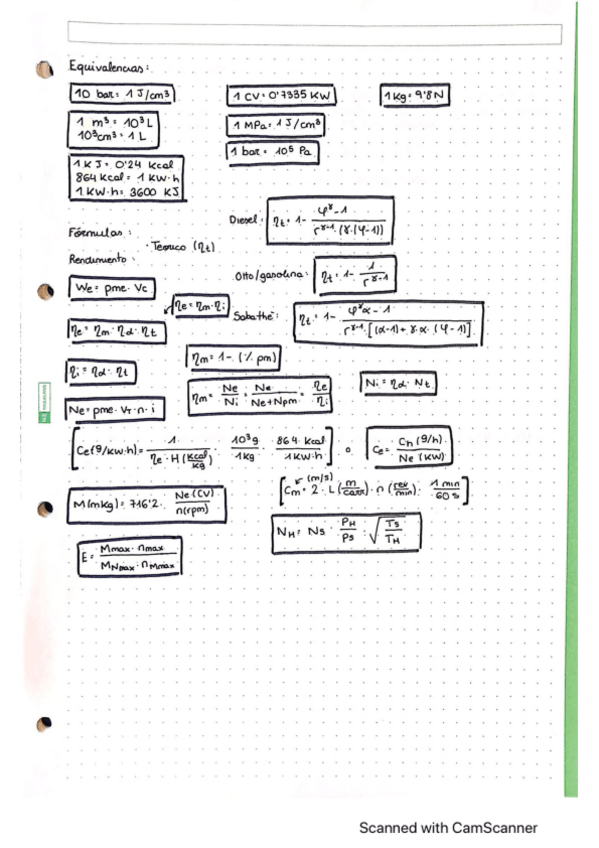 Equivalencias:
10 bar = 1 J/cm³
1 CV = 0'7335 KW
1 Kg = 9'8 N
1 m³ = 10³ L
10³cm³ = 1 L
1 MPa = 1 J/cm³
1 bar = 10⁵ Pa
1 KJ = 0'24 Kcal
864 Kcal = 1 KW·h
1 KW·h = 3600 KJ
Fórmulas:
· Teorico (ηt)
Diesel: ηt = 1 - (φ^γ - 1) / (r^γ-1 · (γ·(φ-1)))
Rendimiento:
Otto/gasolina: ηt = 1 - 1 / r^γ-1
We = pme · Vc
ηe = ηm · ηi
Sabathé: ηt = 1 - (φ^γ α - 1) / (r^γ-1 · [(α-1) + γ·α·(φ-1)])
ηe = ηm · ηd · ηt
ηi = ηd · ηt
ηm = 1 - (% pm)
ηm = Ne / Ni = Ne / (Ne + Npm) = ηe / ηi
Ni = ηd · Nt
Ne = pme · VT · n · i
[Ce (g/KW·h) = 1 / (ηe · H (Kcal/kg)) · 10³g / 1kg · 864 Kcal / 1KW·h] o Ce = Ch (g/h) / Ne (KW)
M (mKg) = 716'2 · Ne (CV) / n (rpm)
[Cm (m/s) = 2 · L (m/carr) · n (rev/min) · 1 min / 60 s]
NH = NS · PH / PS · √(TS / TH)
E = (Mmax · nmax) / (MNmax · nMmax)
Scanned with CamScanner